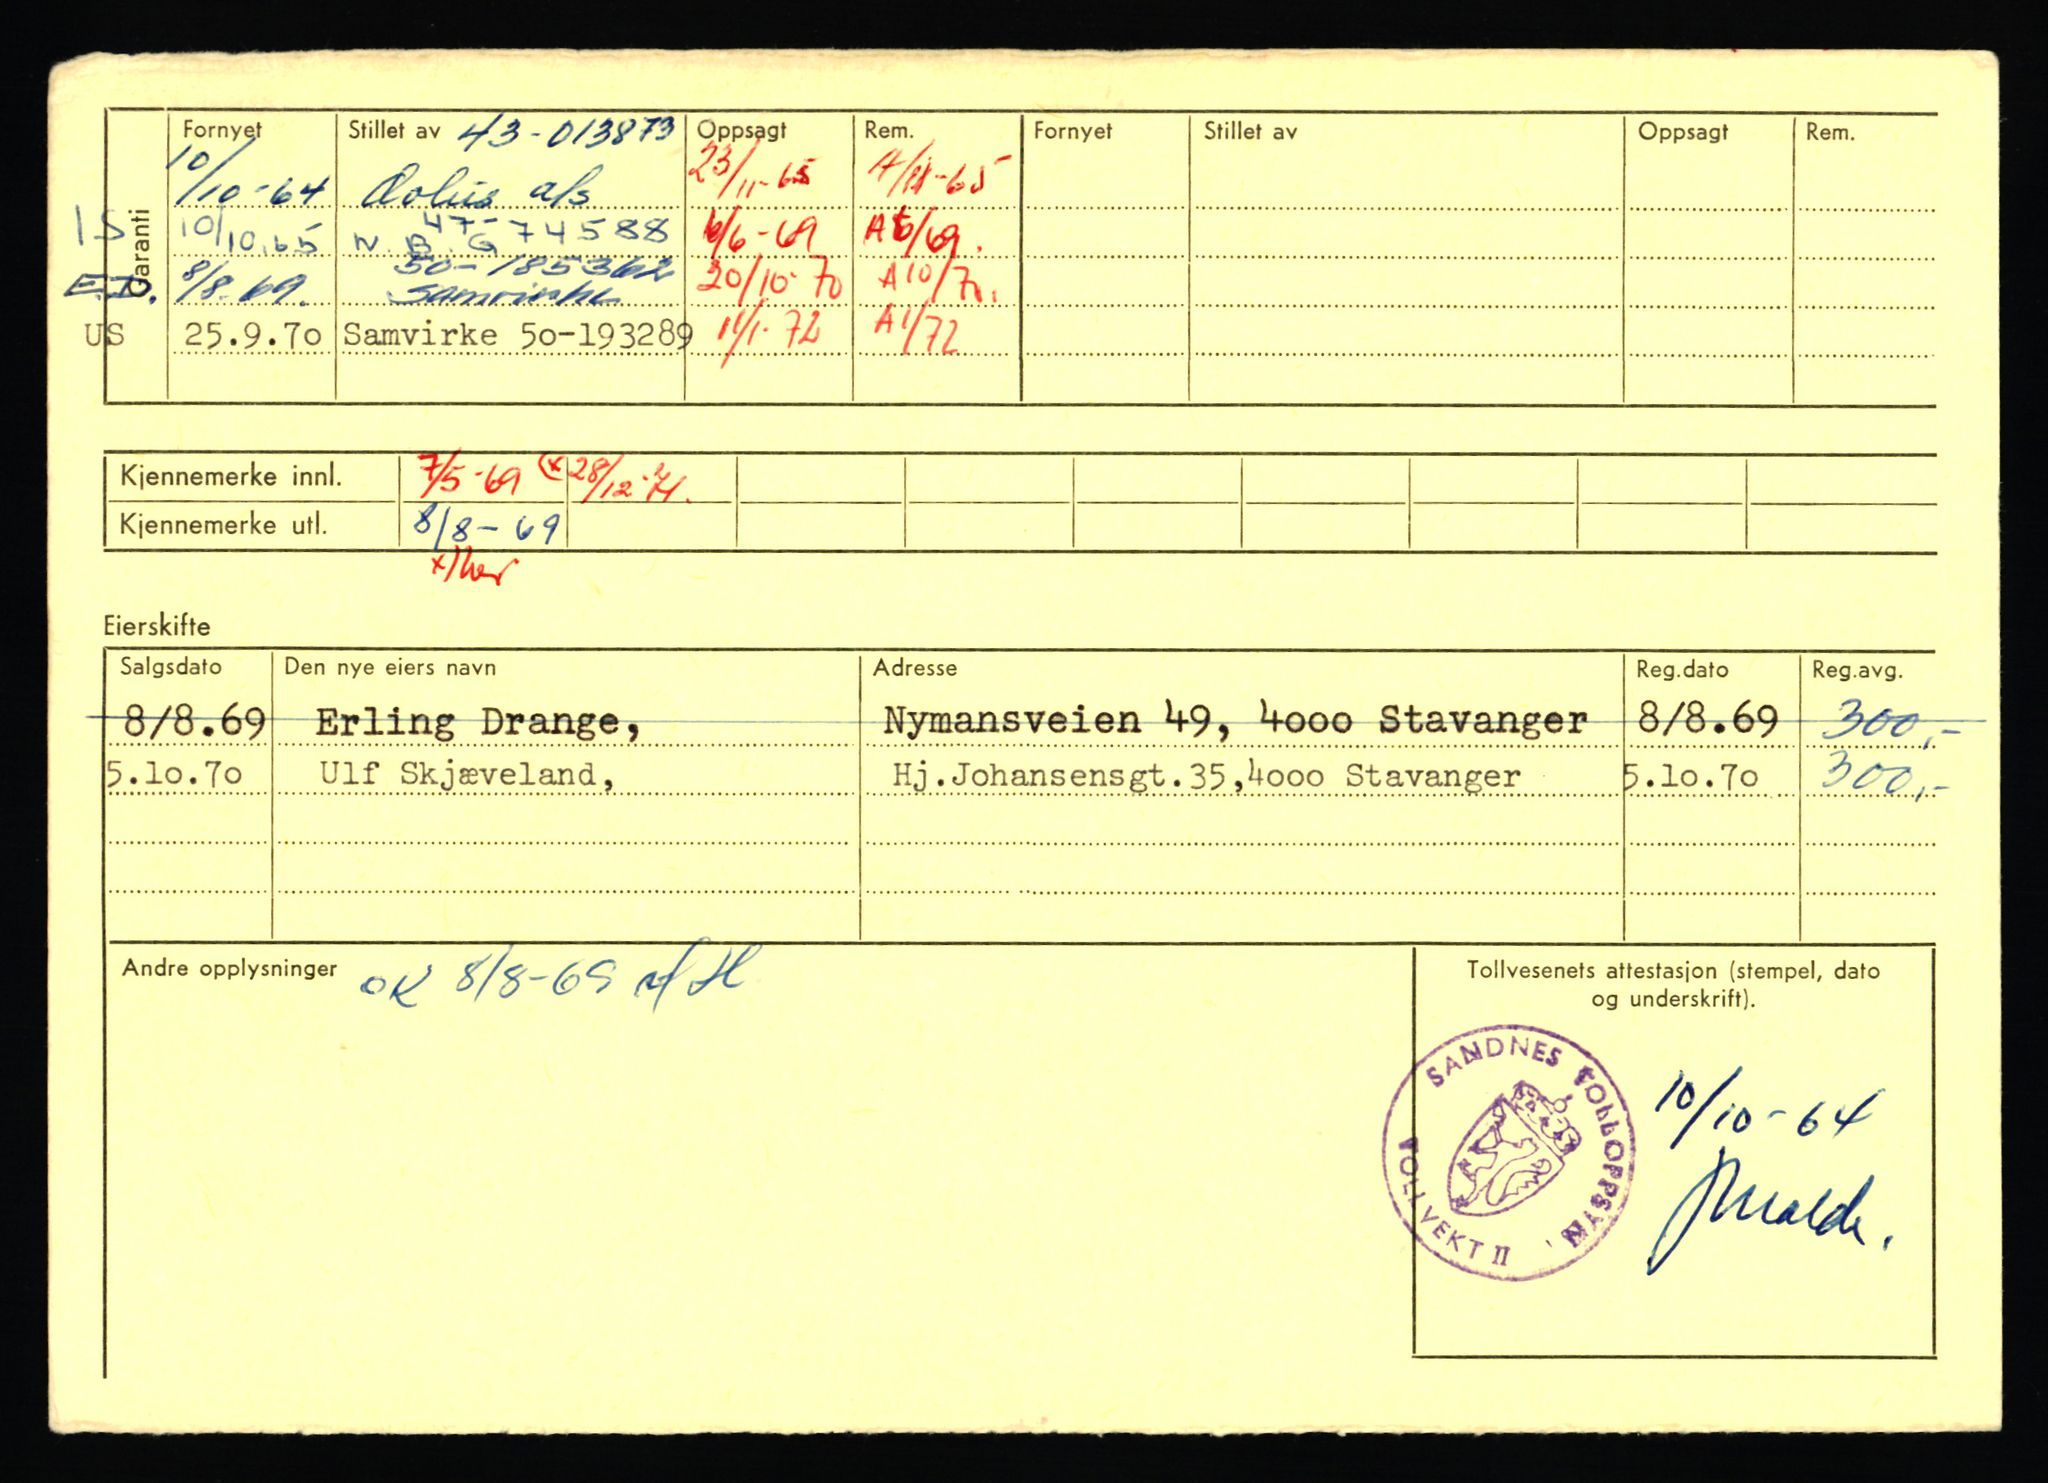 Garanti
Fornyet Stillet av 43-013873 Oppsagt Rem. Fornyet Stillet av Oppsagt Rem.
10/10-64 Æolus a/s 23/11-65 A/11-65
IS 10/10.65 47-74588 N.B.G 6/6-69 A6/69.
E.D. 8/8.69. 50-185362 Samvirke 20/10-70 A10/70.
US 25.9.70 Samvirke 50-193289 11/1-72 A1/72
Kjennemerke innl. 7/5-69 (x 28/12-71.
Kjennemerke utl. 8/8-69
x)
Eierskifte
Salgsdato Den nye eiers navn Adresse Reg.dato Reg.avg.
8/8.69 Erling Drange, Nymansveien 49, 4000 Stavanger 8/8.69 300,-
5.10.70 Ulf Skjæveland, Hj.Johansensgt.35,4000 Stavanger 5.10.70 300,-
Andre opplysninger OK 8/8-69
Tollvesenets attestasjon (stempel, dato
og underskrift).
SANDNES TOLLOPPSYN
TOLLVEKT II
10/10-64